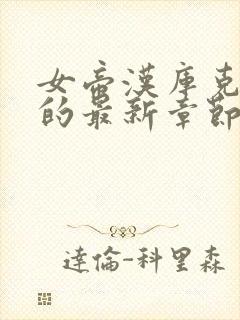 女帝漢庫克
的最新章節
達倫-科里森